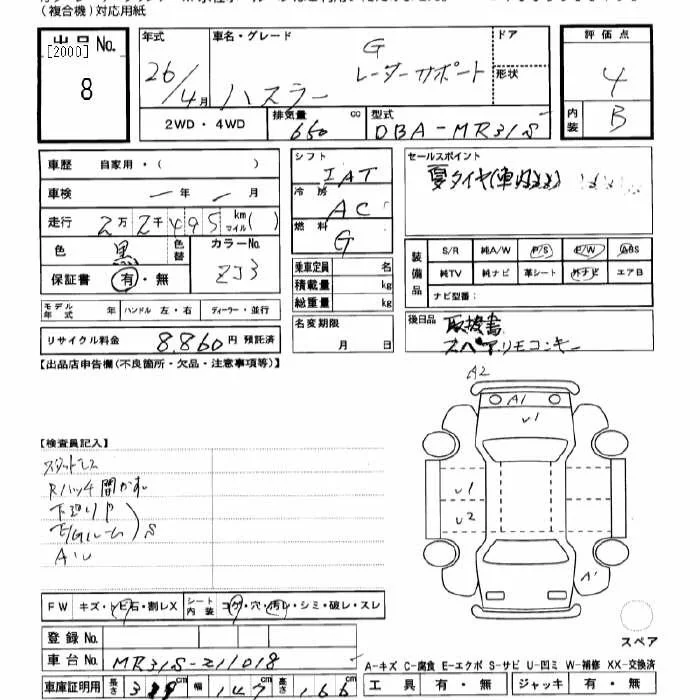 (複合機)対応用紙
出品 No.
[2000]
8
年式
26/4月
車名・グレード
G
ハスラー レーダーサポート
ドア
形状
評価点
4
内装
B
2WD・4WD
排気量
660 cc
型式
DBA-MR31S
車歴 自家用・( )
車検 ー年 ー月
走行 2万2千495 km マイル( )
色 黒 色替
カラーNo.
ZJ3
保証書 有・無
モデル年式 年 ハンドル 左・右 ディーラー・並行
リサイクル料金 8,860円 預託済
シフト
IAT
冷房
AC
燃料
G
乗車定員 名
積載量 kg
総重量 kg
名変期限
月 日
セールスポイント
夏タイヤ(車内
装備品
S/R 純A/W P/S P/W ABS
純TV 純ナビ 革シート 外ナビ エアB
ナビ型番:
後日品
取扱書
スペアリモコンキー
【出品店申告欄(不良箇所・欠品・注意事項等)】
A2
A1
U1
U1
U2
A1
【検査員記入】
スタッドレス
Rハッチ開かず
下廻りや
E/Gルーム)S
A・U
FW キズ・トビ石・割レX
シート内装 コゲ・穴・汚レ・シミ・破レ・スレ
登録 No.
車台 No. MR31S-211018
車庫証明用 長さ cm 幅 147 cm 高さ 166 cm
スペア
A-キズ C-腐食 E-エクボ S-サビ U-凹ミ W-補修 XX-交換済
工具 有・無 ジャッキ 有・無